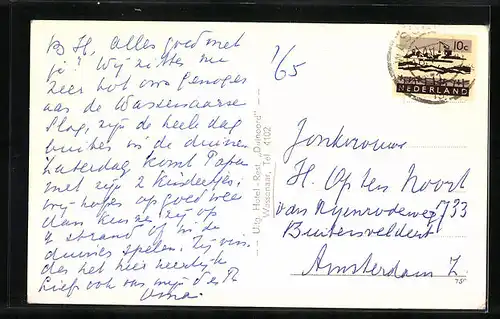 B H, alles goed met
je? Wij zitten nu
zeer tot ons genoegen
aan de Wassenaarse
Slag, zijn de hele dag
buiten in de duinen
Zaterdag komt
met zijn 2 kindertjes,
wij hopen op goed weer
dan kunnen zij op
't strand of in de
duinen spelen. Zij vin-
den het hier heerlijk
Liefs ook van mijn
1/65
10c
NEDERLAND
Uitg. Hotel - Rest. „Duinoord"
Wassenaar, Tel. 4102
Jonkvrouwe
H. Op ten Noort
van Nijenrodeweg 733
Buitenveldert
Amsterdam Z.